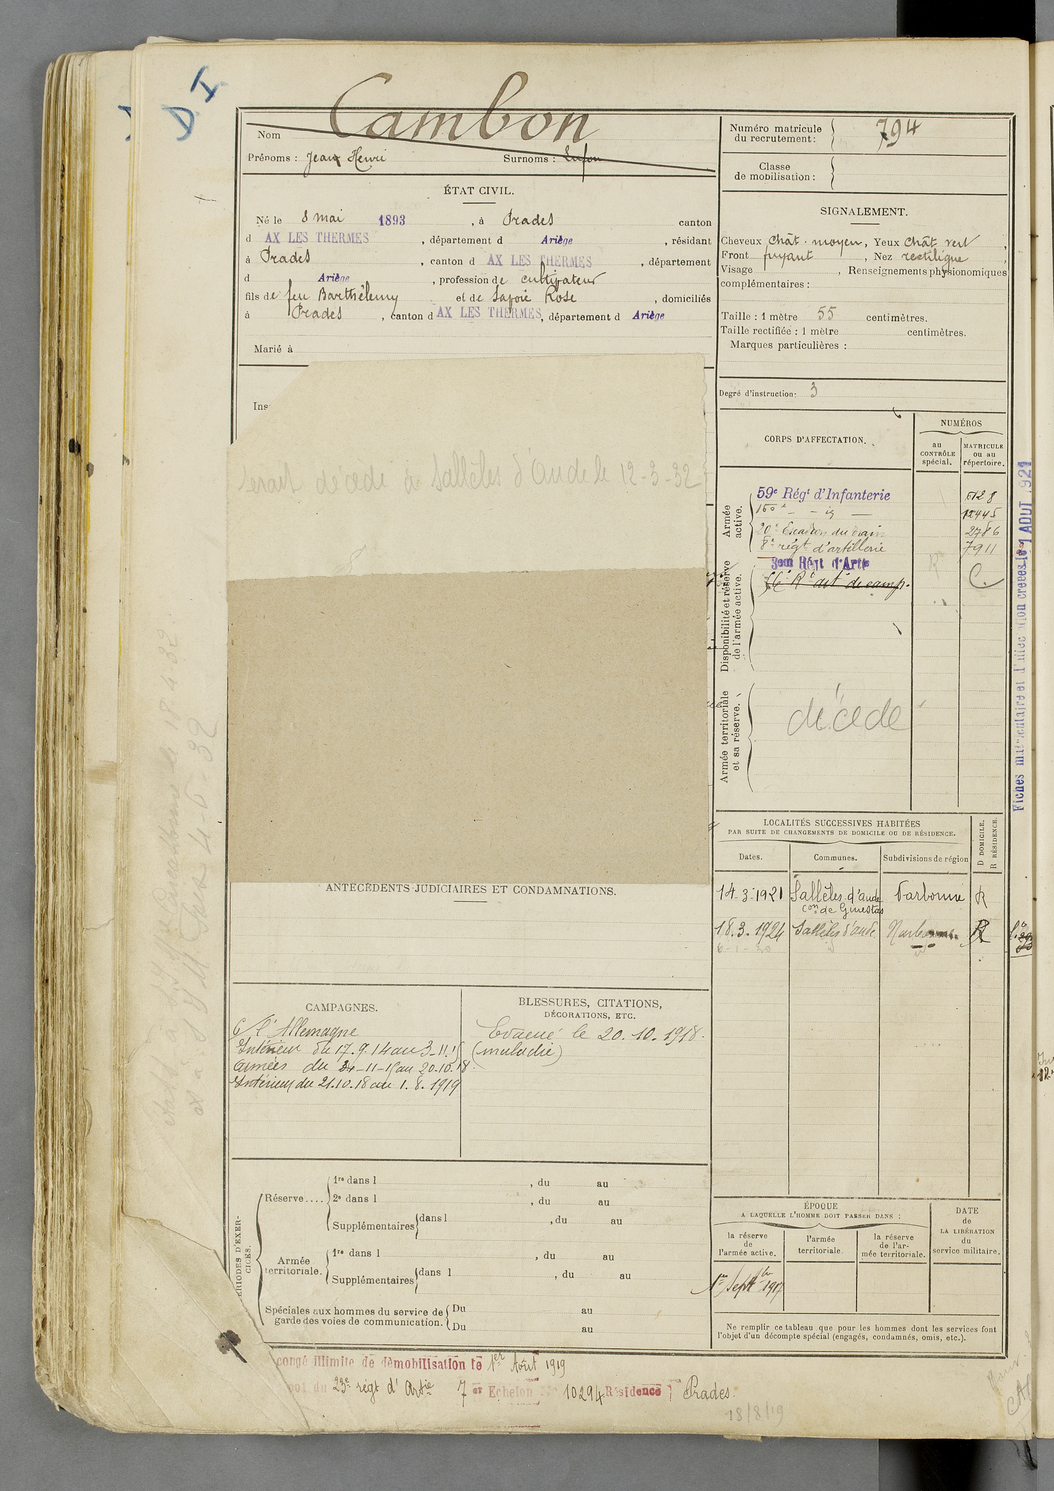 D I
Nom Cambon
Prénoms : Jean Henri Surnoms :
ÉTAT CIVIL.
Né le 8 mai 1893, à Prades canton
d AX LES THERMES, département d Ariège, résidant
à Prades, canton d AX LES THERMES, département
d Ariège, profession de cultivateur
fils de feu Barthélemy et de Lafoie Rose, domiciliés
à Prades, canton d AX LES THERMES, département d Ariège
Marié à
Ins
serait décédé à Sallèles d'Aude le 12-3-32
ANTÉCÉDENTS JUDICIAIRES ET CONDAMNATIONS.
CAMPAGNES.
C/ l'Allemagne
Intérieur du 17.9.14 au 3-11-15
Armées du 24-11-15 au 20.10.18.
Intérieur du 21.10.18 au 1.8.1919
BLESSURES, CITATIONS,
DÉCORATIONS, ETC.
Evacué le 20.10.1918.
(maladie)
PÉRIODES D'EXERCICES.
Réserve.... 1re dans l , du au
2e dans l , du au
Supplémentaires dans l , du au
Armée territoriale. 1re dans l , du au
Supplémentaires dans l , du au
Spéciales aux hommes du service de garde des voies de communication. Du au
Du au
congé illimité de démobilisation le 1er Août 1919
du 23e régt d'Artie 7 er Echelon No 10294 Résidence : Prades.
18/8/19
Numéro matricule du recrutement : 794
Classe de mobilisation :
SIGNALEMENT.
Cheveux chât. moyen, Yeux chât vert,
Front fuyant, Nez rectiligne,
Visage , Renseignements physionomiques
complémentaires :
Taille : 1 mètre 55 centimètres.
Taille rectifiée : 1 mètre centimètres.
Marques particulières :
Degré d'instruction : 3
CORPS D'AFFECTATION.
NUMÉROS
au CONTRÔLE spécial.
MATRICULE ou au répertoire.
Armée active.
59e Régt d'Infanterie 5128
160e - - ig - 12445
20e Escadron du train 2786
8e régt d'artillerie 7911
Disponibilité et réserve de l'armée active.
3eme Régt d'Artie C.
Rt art de camp.
Armée territoriale et sa réserve.
décédé
LOCALITÉS SUCCESSIVES HABITÉES
PAR SUITE DE CHANGEMENTS DE DOMICILE OU DE RÉSIDENCE.
Dates. Communes. Subdivisions de région D DOMICILE. R RÉSIDENCE.
14-3-1921 Sallèles d'Aude Narbonne R
con de Ginestas
18.3.1924 Sallèles d'Aude R
ÉPOQUE
A LAQUELLE L'HOMME DOIT PASSER DANS :
la réserve de l'armée active.
l'armée territoriale.
la réserve de l'armée territoriale.
DATE de LA LIBÉRATION du service militaire.
1er Septbre 1917
Ne remplir ce tableau que pour les hommes dont les services font
l'objet d'un décompte spécial (engagés, condamnés, omis, etc.).